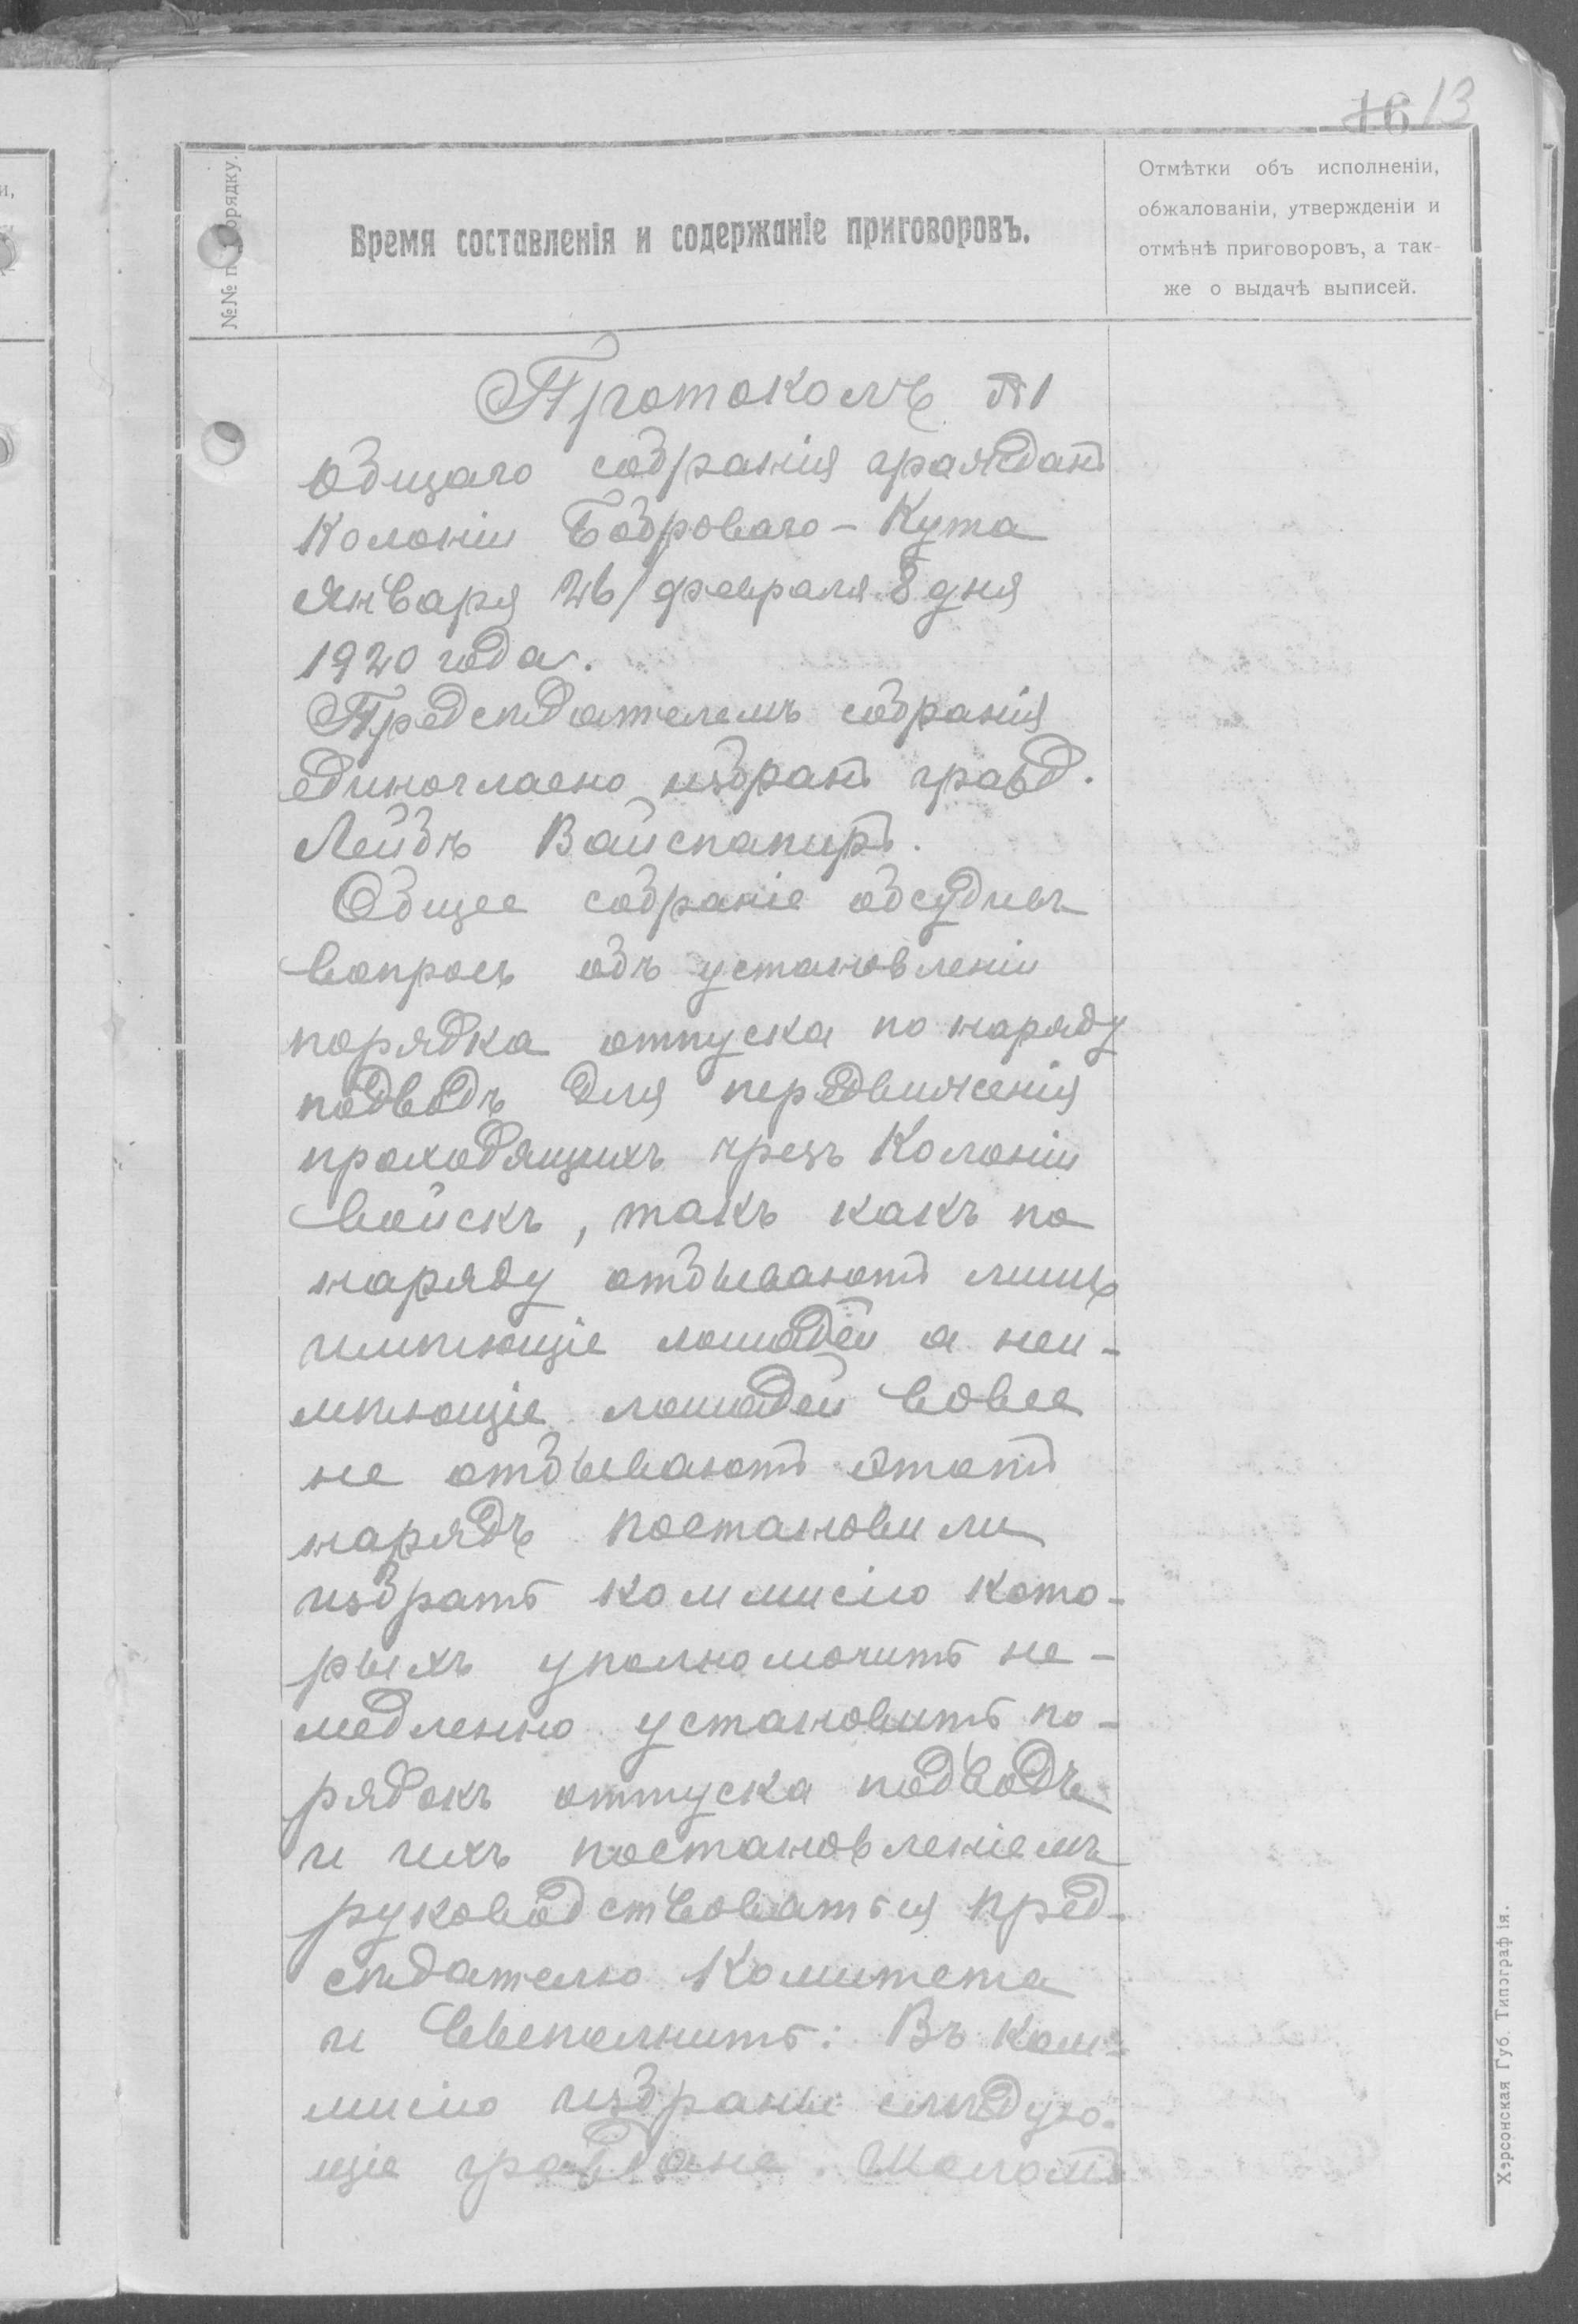 16 13
№№ по порядку.
Время составленія и содержаніе приговоровъ.
Отмѣтки объ исполненіи,
обжалованіи, утвержденіи и
отмѣнѣ приговоровъ, а так-
же о выдачѣ выписей.
Протоколъ №1
Общаго собранія гражданъ
Колоніи Боброваго-Кута
Января 26/февраля 8 дня
1920 года.
Предсѣдателемъ собранія
единогласно избранъ гражд.
Лейбъ Вайспапиръ.
Общее собраніе обсудивъ
вопросъ объ установленіи
порядка отпуска по наряду
подводъ для передвиженія
проходящихъ чрезъ Колонію
войскъ, такъ какъ по
наряду отбываютъ лишь
имѣющіе лошадей а неи-
мѣющіе лошадей вовсе
не отбываютъ этотъ
нарядъ постановили
избрать коммисію кото-
рыхъ уполномочить не-
медленно установить по-
рядокъ отпуска подводъ
и ихъ постановленіемъ
руководствоваться пред-
сѣдателю Комитета
и выполнить: Въ ком-
мисію избраны слѣдую-
щіе граждане. Шоломъ
Херсонская Губ. Типографія.